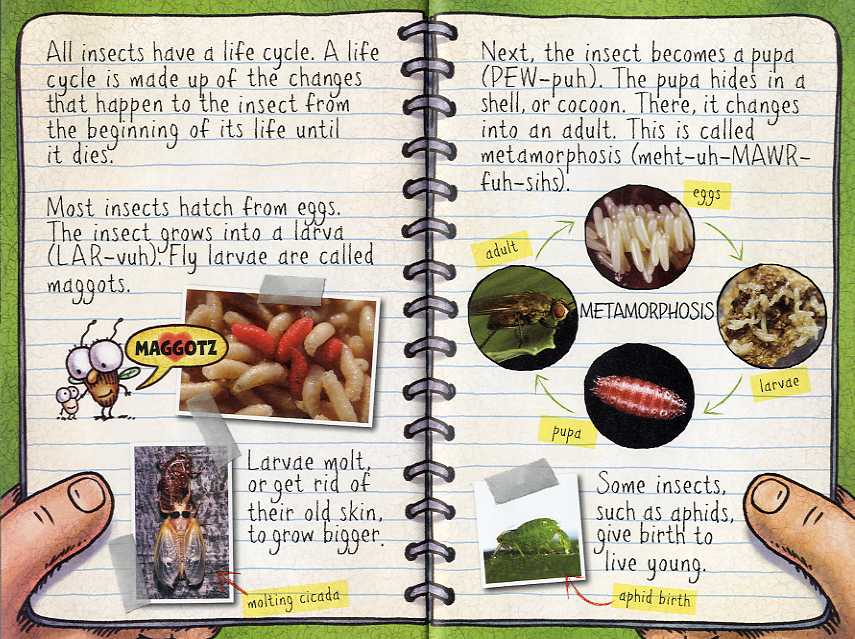 All insects have a life cycle. A life
cycle is made up of the changes
that happen to the insect from
the beginning of its life until
it dies.
Most insects hatch from eggs.
The insect grows into a larva
(LAR-vuh). Fly larvae are called
maggots.
MAGGOTZ
Larvae molt,
or get rid of
their old skin,
to grow bigger.
molting cicada
Next, the insect becomes a pupa
(PEW-puh). The pupa hides in a
shell, or cocoon. There, it changes
into an adult. This is called
metamorphosis (meht-uh-MAWR-
fuh-sihs).
eggs
adult
METAMORPHOSIS
larvae
pupa
Some insects,
such as aphids,
give birth to
live young.
aphid birth